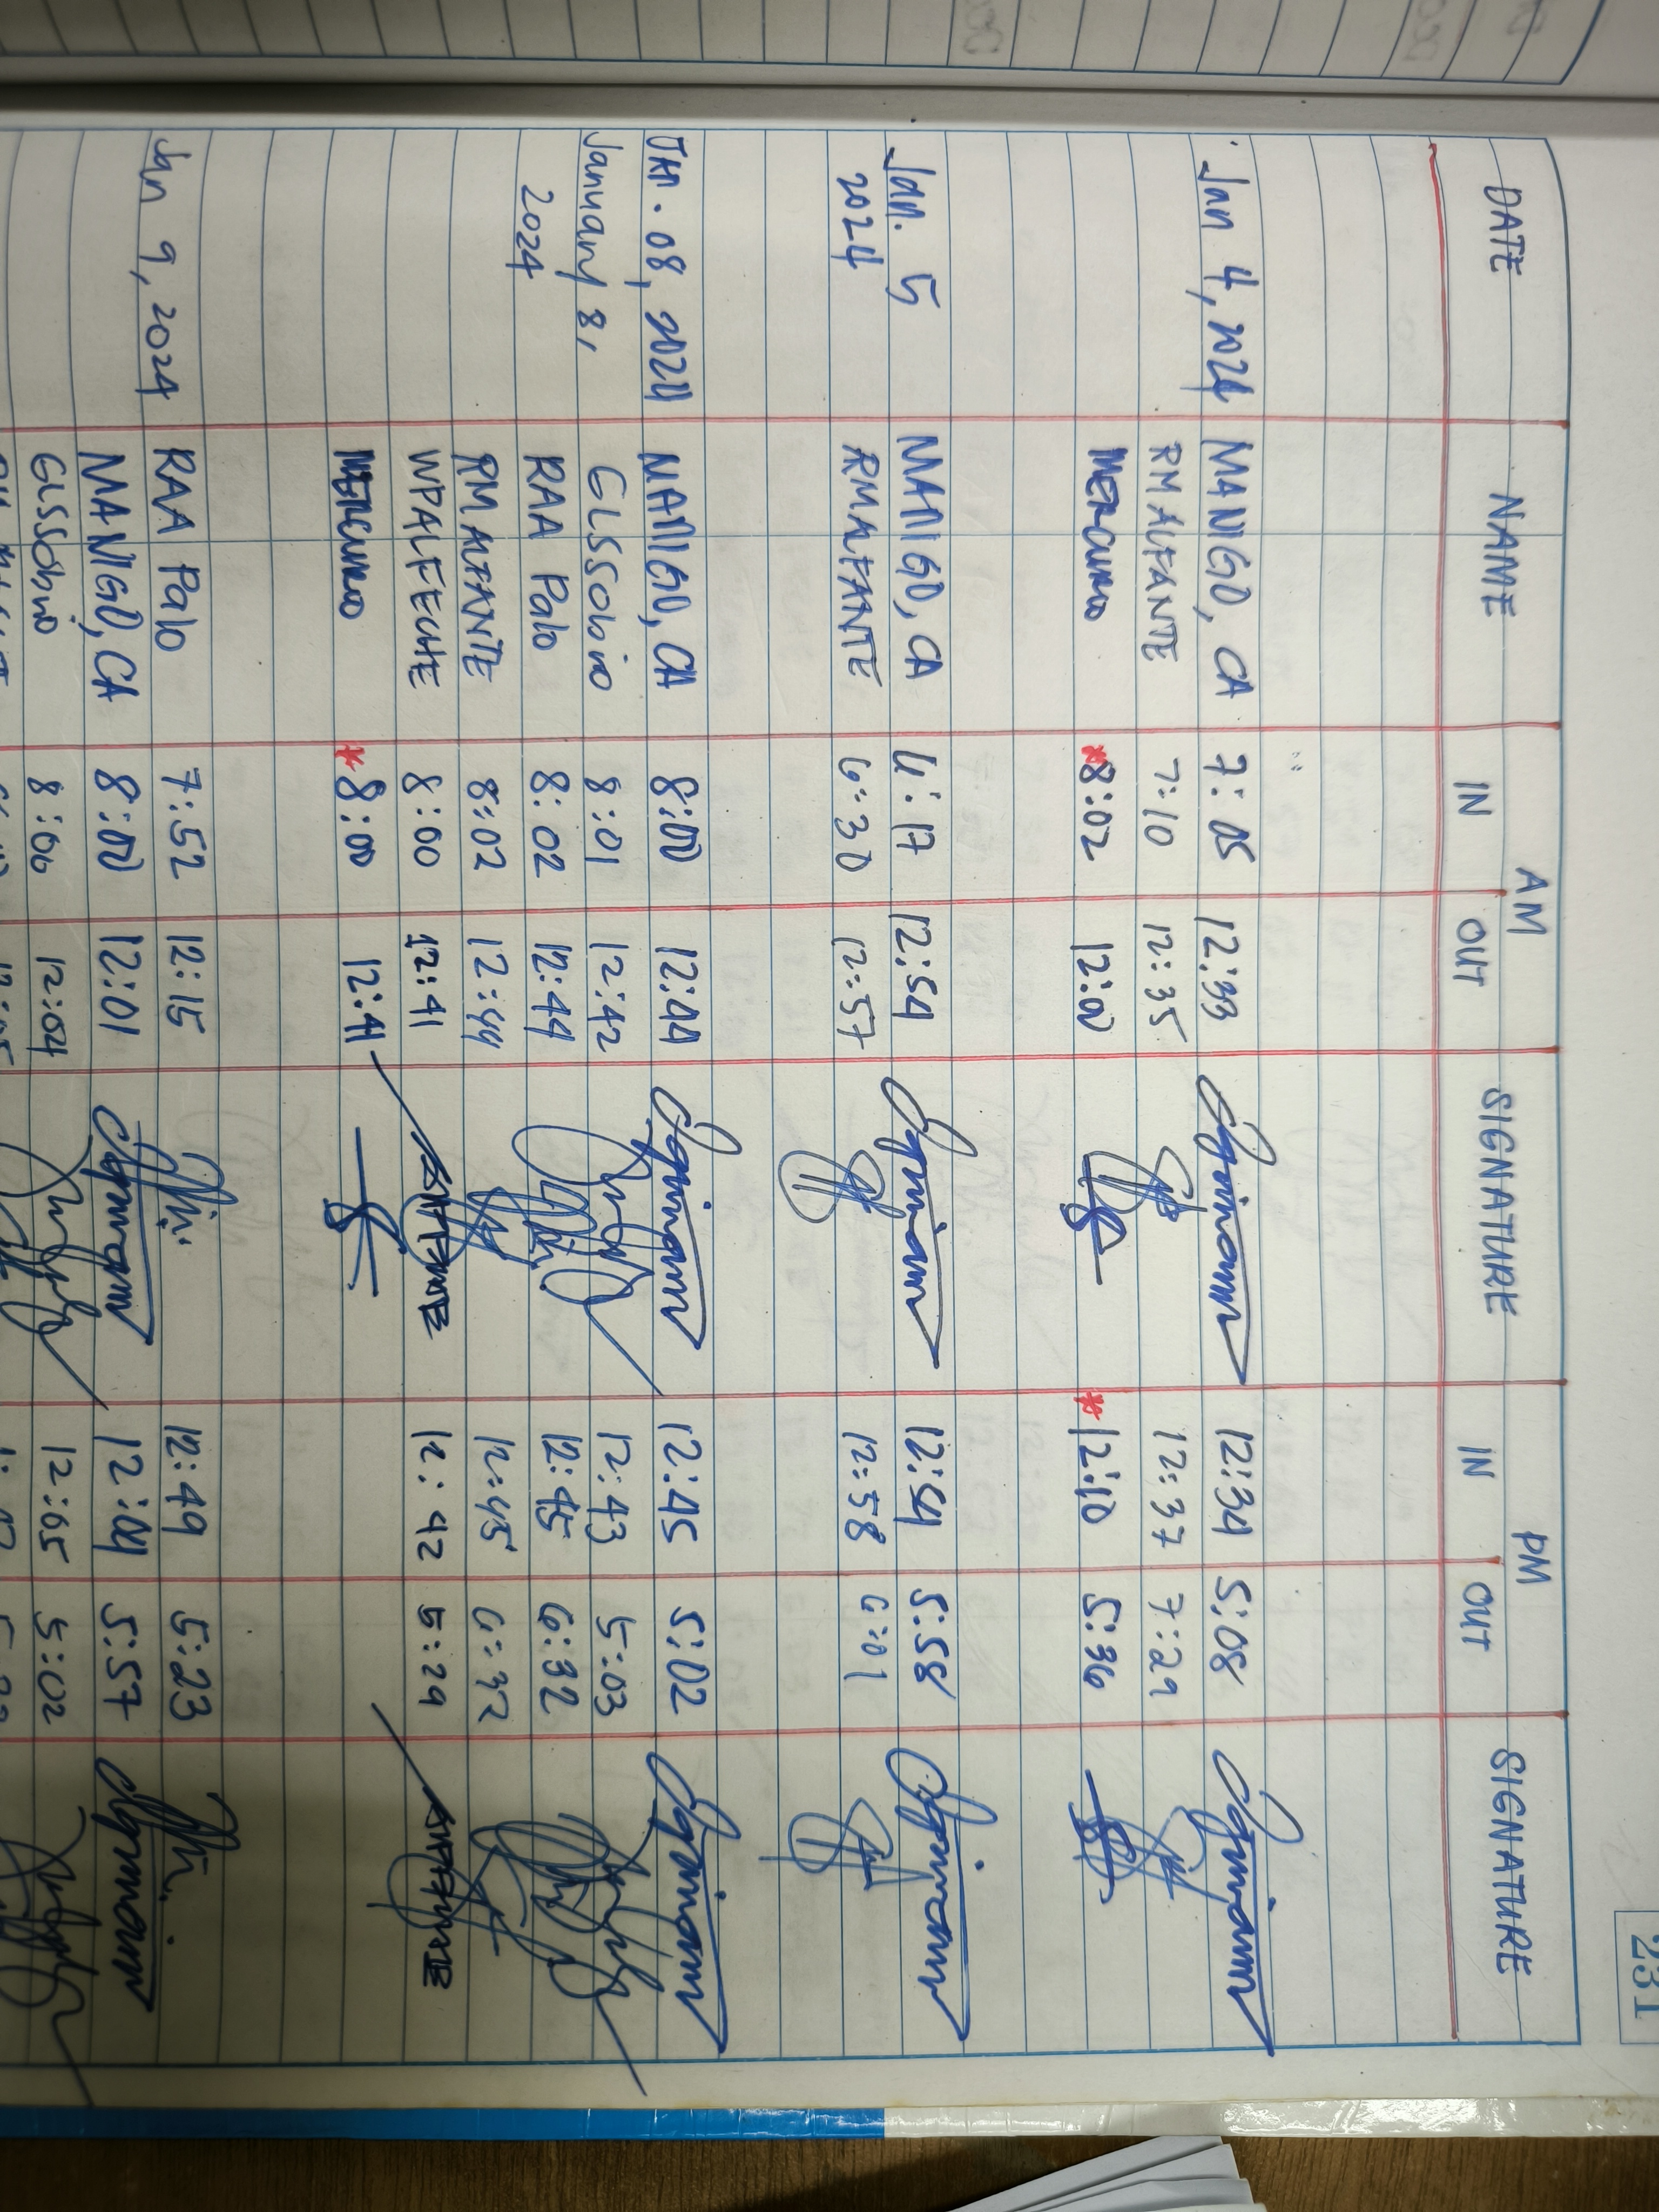 231
DATE NAME AM IN OUT SIGNATURE PM IN OUT SIGNATURE
Jan 4, 2024 MANIGO, CA 7:05 12:33 12:34 5:08
RMALFANTE 7:10 12:35 12:37 7:29
*8:02 12:00 *12:10 5:36
Jan. 5 MANIGO, CA 12:54 12:54 5:58
2024 RMALFANTE 6:30 12:57 12:58 6:01
JAN. 08, 2024 MANIGO, CA 8:00 12:44 12:45 5:02
January 8, GLSSobrio 8:01 12:42 12:43 5:03
2024 RAA Palo 8:02 12:44 12:45 6:32
RMALFANTE 8:02 12:44 12:45 6:32
WPALFECHE 8:00 12:41 12:42 5:29
*8:00 12:41
Jan 9, 2024 RAA Palo 7:52 12:15 12:49 5:23
MANIGO, CA 8:00 12:01 12:04 5:57
GLSSobrio 8:06 12:04 12:05 5:02